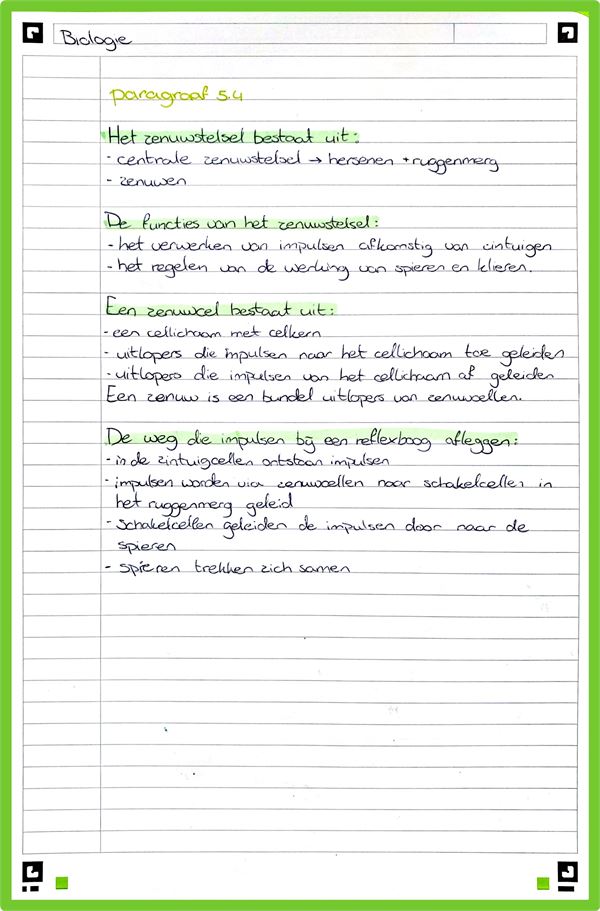 Biologie
paragraaf 5.4
Het zenuwstelsel bestaat uit:
- centrale zenuwstelsel → hersenen + ruggenmerg
- zenuwen
De functies van het zenuwstelsel:
- het verwerken van impulsen afkomstig van zintuigen
- het regelen van de werking van spieren en klieren.
Een zenuwcel bestaat uit:
- een cellichaam met celkern
- uitlopers die impulsen naar het cellichaam toe geleiden
- uitlopers die impulsen van het cellichaam af geleiden
Een zenuw is een bundel uitlopers van zenuwcellen.
De weg die impulsen bij een reflexboog afleggen:
- in de zintuigcellen ontstaan impulsen
- impulsen worden via zenuwcellen naar schakelcellen in
het ruggenmerg geleid
- Schakelcellen geleiden de impulsen door naar de
spieren
- spieren trekken zich samen